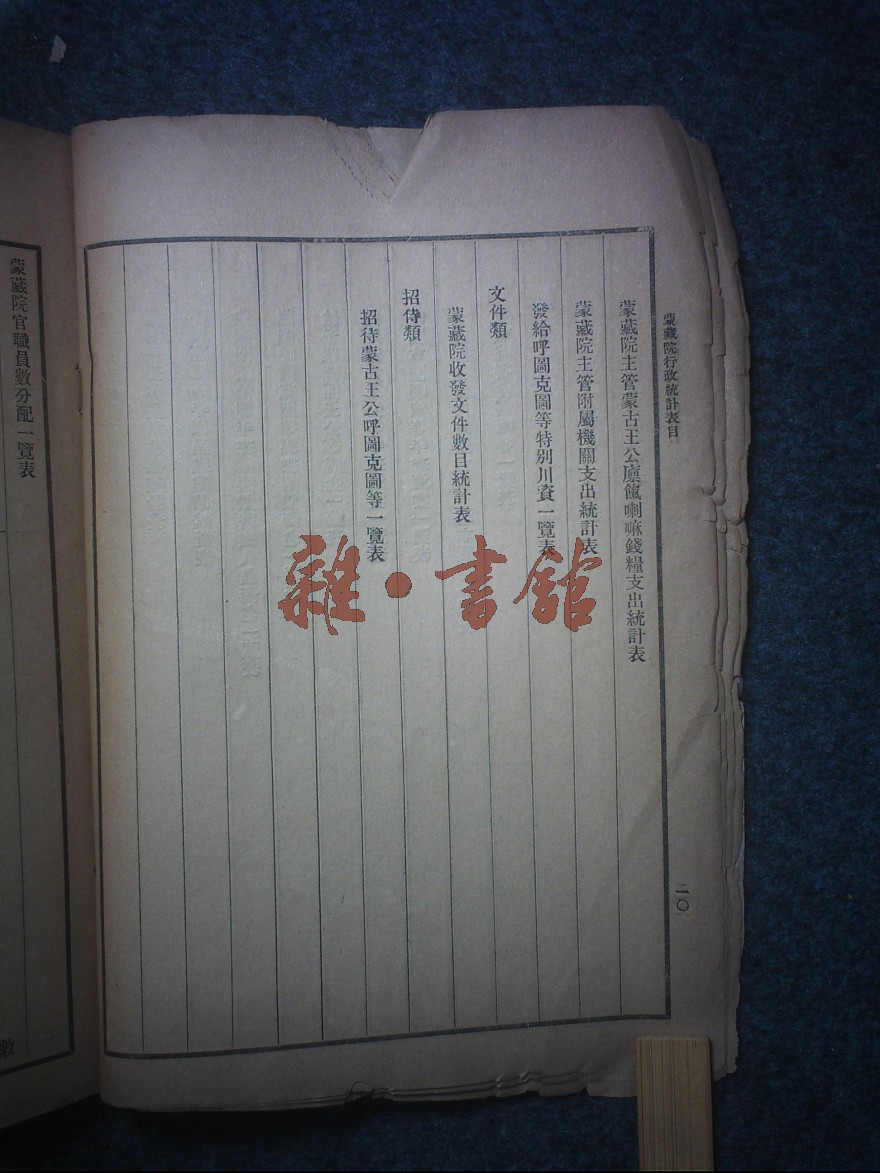 蒙藏院行政統計表目
蒙藏院主管蒙古王公廩餼喇嘛錢糧支出統計表
蒙藏院主管附屬機關支出統計表
發給呼圖克圖等特别川資一覽表
文件類
蒙藏院收發文件數目統計表
招待類
招待蒙古王公呼圖克圖等一覽表
二〇
雜·書館
蒙藏院官職員數分配一覽表
數